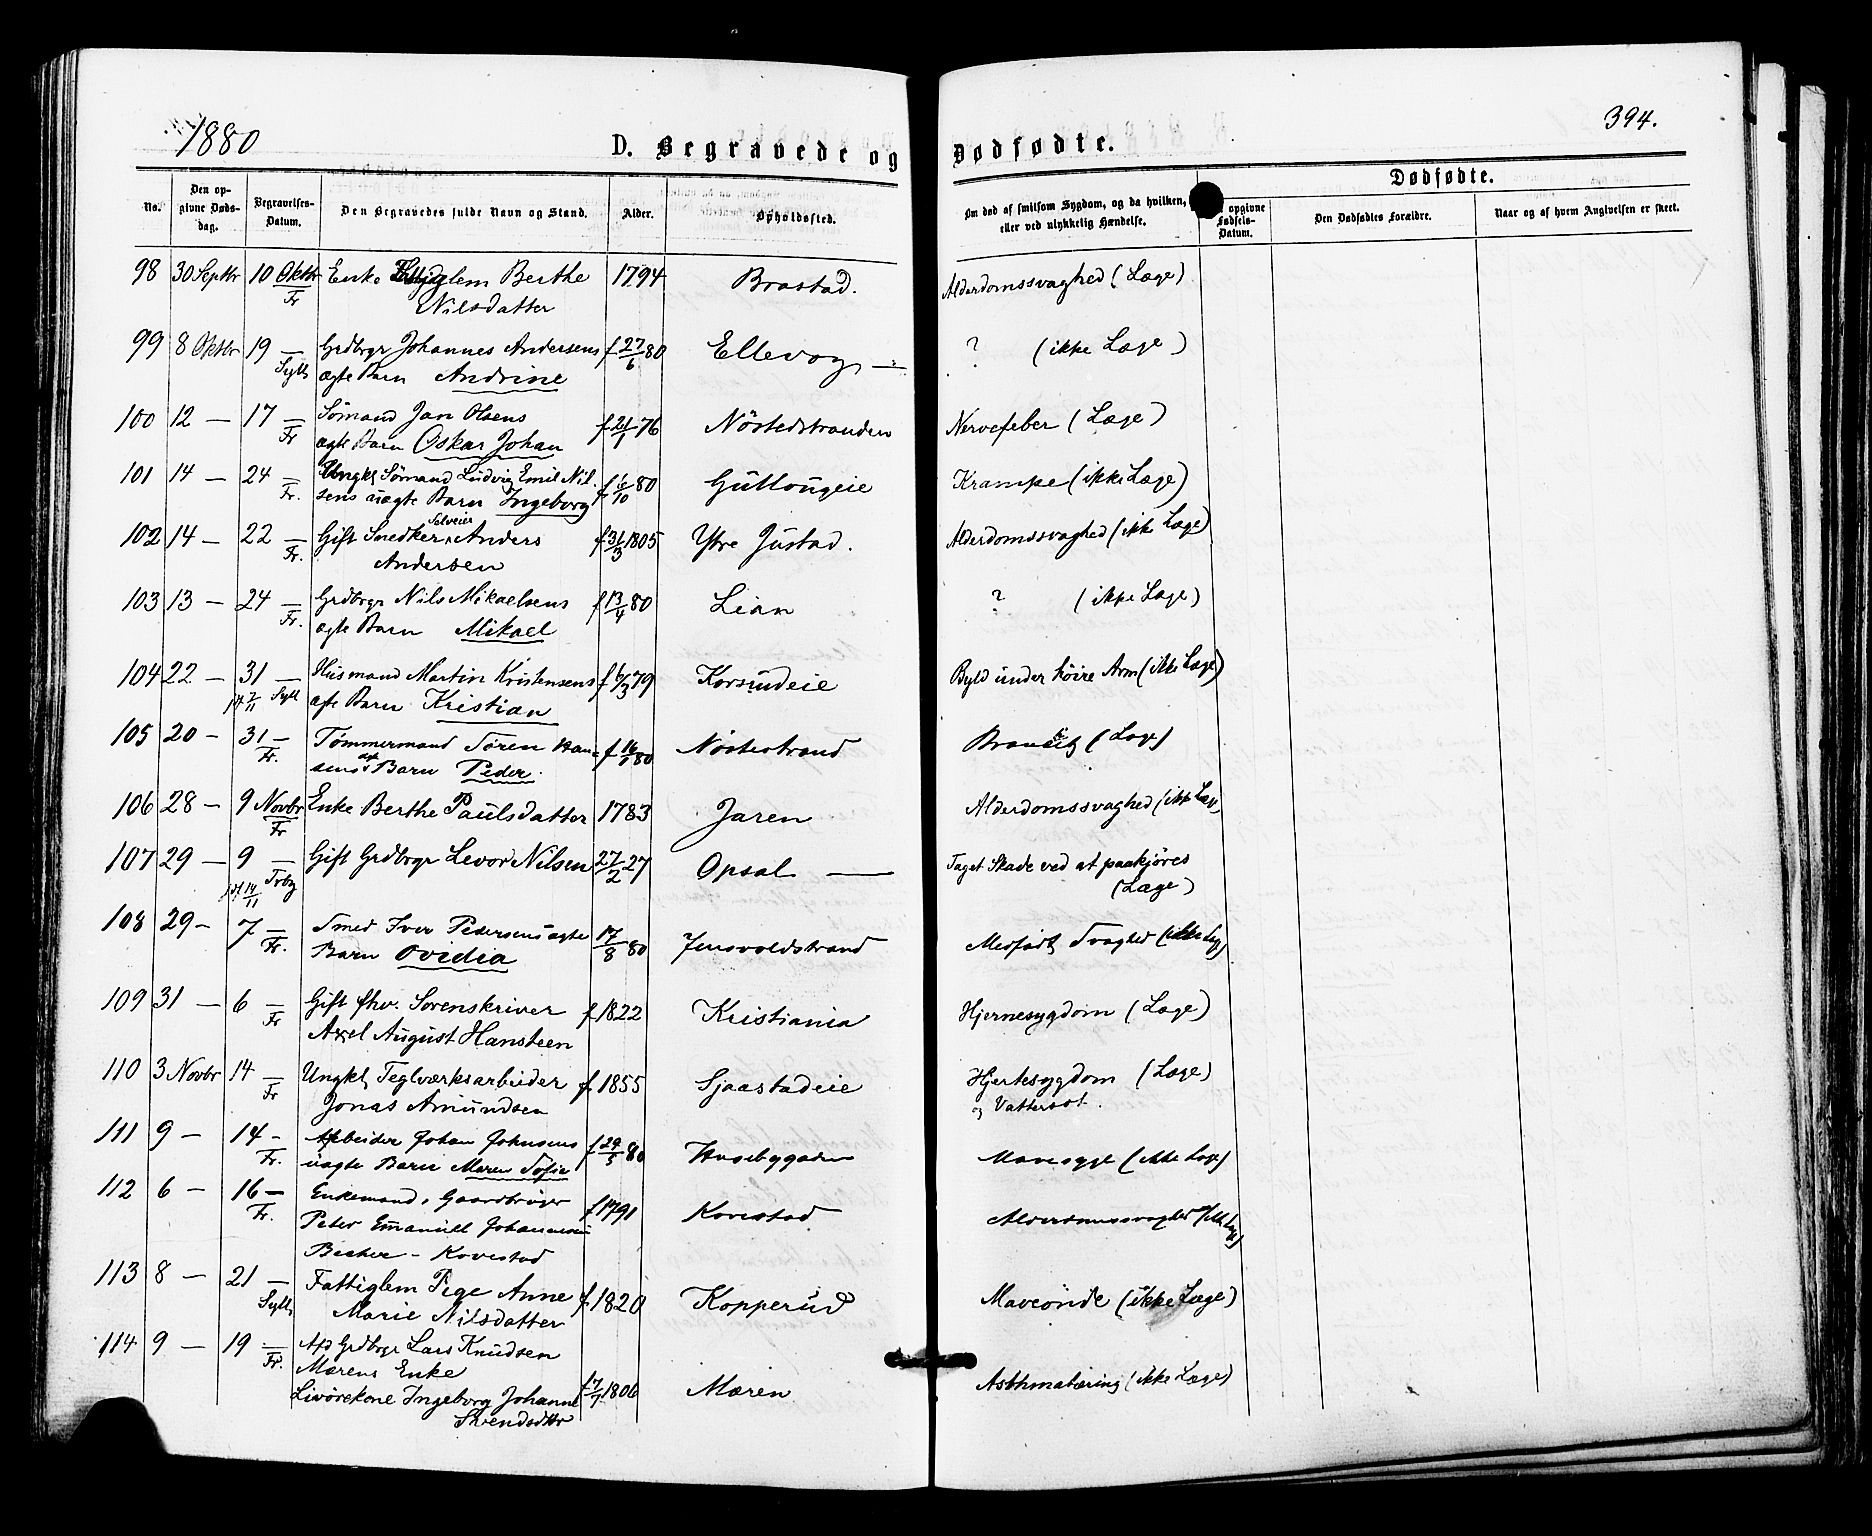 1880
D. Begravede og Dødfødte.
394.
No.
Den opgivne Dødsdag.
Begravelses-Datum.
Den Begravedes fulde Navn og Stand.
Alder.
Opholdssted.
Om død af smitsom Sygdom, og da hvilken, eller ved ulykkelig Hændelse.
Dødfødte.
opgivne Fødsels-Datum.
Den Dødfødtes Forældre.
Naar og af hvem Angivelsen er skeet.
98 30 Septbr 10 Oktbr Enke Berthe 1794 Brastad. Alderdomssvaghed (Læge)
Fr Nilsdatter
99 8 Oktbr 19 — Grdbrgr Johannes Andersens f 27/6 80 Ellevog — ? (ikke Læge)
Sylls ægte Barn Andrine
100 12 — 17 — Sömand Jan Olsens f 21/1 76 Nöstedstranden Nervefeber (Læge)
Fr ægte Barn Oskar Johan
101 14 — 24 — Ungkl Sömand Ludvig Emil Nil- f 6/10 80 Guttougeie Krampe (ikke Læge)
Fr. sens uægte Barn Ingeborg
102 14 — 22 — Gift Snedker Selveier Anders f 31/3 1805 Ytre Justad. Alderdomssvaghed (ikke Læge)
Fr. Andersen
103 13 — 24 — Grdbrgr Nils Mikaelsens f 13/4 80 Lian ? (ikke Læge)
Fr. ægte Barn Mikael
104 22 — 31 — Husmand Martin Kristensens f 6/3 79 Korsundeie Byld under höire Arm (ikke Læge)
7/11 Syll ægte Barn Kristian
105 20 - 31 — Tömmermand Sören Han- f 16/1 80 Nöstestrand (Læge)
Fr. sens ægte Barn Peder.
106 28 — 9 Novbr Enke Berthe Paulsdatter 1783 Jaren Alderdomssvaghed (ikke Læge
Fr
107 29 — 9 — Gift Grdbrgr Levor Nilsen 27/2 27 Opsal — Taget Skade ved at paakjöres
14/11 (Læge)
108 29 - 7 — Smed Iver Pedersens ægte 17/8 80 Jensvoldstrand Medfödt Svaghed (ikke Læge)
Fr. Barn Ovidia
109 31 — 6 — Gift fhv. Sorenskriver f 1822 Kristiania Hjernesygdom (Læge)
Fr Axel August Hansteen
110 3 Novbr 14 — Ungkl Teglværksarbeider f 1855 Sjaastadeie Hjertesygdom (Læge)
Fr Jonas Amundsen og Vattersot.
111 9 — 14 - Arbeider Johan Johnsens f 29/5 80 Husebygaden Mavesyge (ikke Læge)
Fr. uægte Barn Maren Sofie
112 6 — 16 — Enkemand, Gaardbruger f 1791 Kovestad Alderdomssvaghed (ikke Læge)
Fr. Peter Emanuel Johannesen
Becher - Kovestad
113 8 — 21 — Fattiglem Pige Anne f 1820 Kopperud Maveonde (ikke Læge)
Sylls Marie Nilsdatter
114 9 — 19 — Afd Grdbrgr Lars Knudsen
Fr. Mærens Enke
Livörekone Ingeborg Johanne f 17/7 1806 Mæren Asthmatæring (ikke Læge)
Svendsdttr